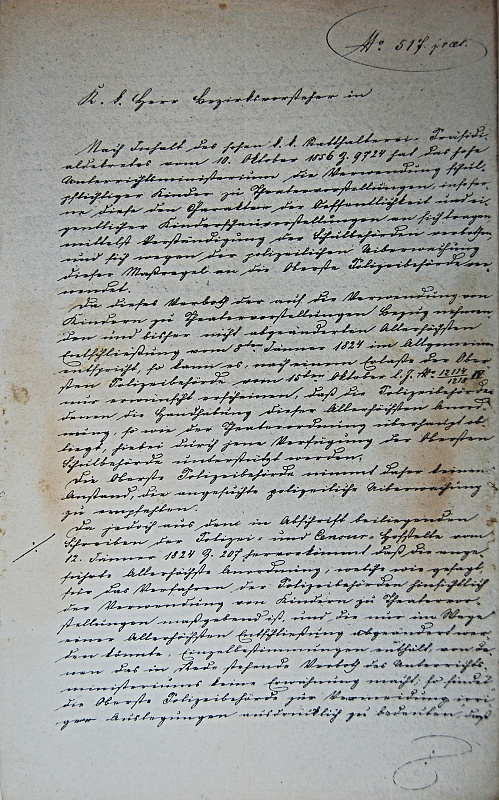 No 517 praes.
K. k. Herr Bezirksvorsteher in
Nach Inhalt des hohen k. k. Statthalterei-Präsidi-
aldekretes vom 10. Oktober 1856 Z. 9724 hat das hohe
Unterrichtsministerium die Verwendung schul-
pflichtiger Kinder zu Theatervorstellungen, insofer-
ne diese den Charakter der Oeffentlichkeit und ei-
gentlicher Kinderschauvorstellungen an sich tragen
mittelst Verständigung der Schulbehörden verbothen
und sich wegen der polizeilichen Uiberwachung
dieser Maßregel an die Oberste Polizeibehörde ver-
wendet.
Da dieses Verboth der auf die Verwendung von
Kindern zu Theatervorstellungen Bezug nehmen-
den und bisher nicht abgeänderten Allerhöchsten
Entschließung vom 8ten Jänner 1824 im Allgemeinen
entspricht, so kann es, nach einem Erlaße der Ober-
sten Polizeibehörde vom 15ten Oktober l. J. No 12114/1218 IV
nur erwünscht erscheinen, daß die Polizeibehörde
denen die Handhabung dieser Allerhöchsten Anord-
nung, so wie der Theaterordnung überhaupt ob-
liegt, hiebei durch jene Verfügung der Obersten
Schulbehörde unterstützt werden.
Die Oberste Polizeibehörde nimmt daher keinen
Anstand, die angesuchte polizeiliche Uiberwachung
zu empfehlen.
Da jedoch aus dem in Abschrift beiliegenden
Schreiben der Polizei- und Censur-Hofstelle vom
12. Jänner 1824 Z. 207 hervorkommt daß die ange-
führte Allerhöchste Anordnung, welche wie gesagt,
für das Verfahren der Polizeibehörden hinsichtlich
der Verwendung von Kindern zu Theatervor-
stellungen maßgebend ist und die nur im Wege
einer Allerhöchsten Entschließung abgeändert wer-
den könnte. Einzelbestimmungen enthält, von de-
nen das in Rede stehende Verboth des Unterrichts-
ministeriums keine Erwähnung macht; so findet
die Oberste Polizeibehörde zur Vermeidung irri-
ger Auslegungen ausdrücklich zu bedeuten, daß